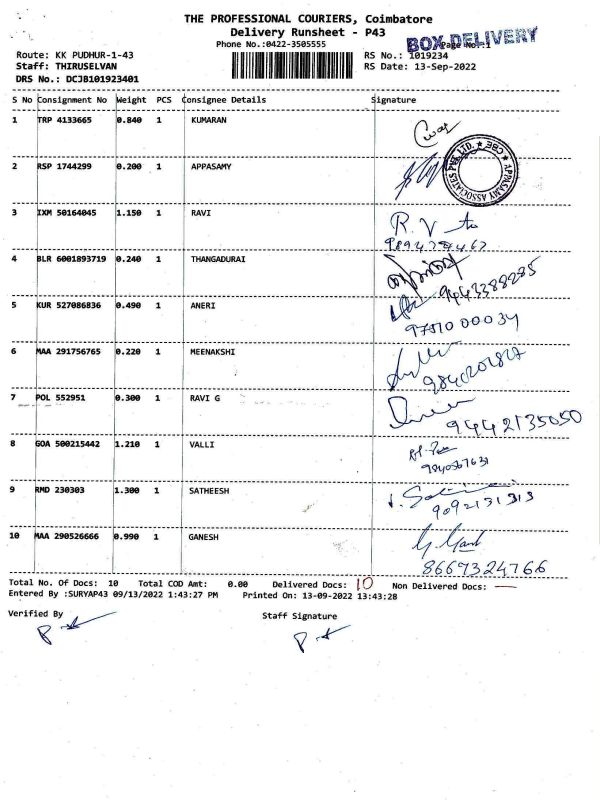 THE PROFESSIONAL COURIERS, Coimbatore
Delivery Runsheet - P43
Phone No.:0422-3505555
BOX DELIVERY
Page No.:1
Route: KK PUDHUR-1-43
RS No.: 1019234
Staff: THIRUSELVAN
RS Date: 13-Sep-2022
DRS No.: DCJB101923401
S No Consignment No Weight PCS Consignee Details Signature
1 TRP 4133665 0.840 1 KUMARAN
2 RSP 1744299 0.200 1 APPASAMY
APPASAMY ASSOCIATES PVT. LTD. ★ CBE ★
3 IXM 50164045 1.150 1 RAVI
R. V
4 BLR 6001893719 0.240 1 THANGADURAI
9443388285
5 KUR 527086836 0.490 1 ANERI
6 MAA 291756765 0.220 1 MEENAKSHI
7 POL 552951 0.300 1 RAVI G
9442135050
8 GOA 500215442 1.210 1 VALLI
9840567631
9 RMD 230303 1.300 1 SATHEESH
9092131313
10 MAA 290526666 0.990 1 GANESH
8667324766
Total No. Of Docs: 10 Total COD Amt: 0.00 Delivered Docs: 10 Non Delivered Docs: —
Entered By :SURYAP43 09/13/2022 1:43:27 PM Printed On: 13-09-2022 13:43:28
Verified By Staff Signature